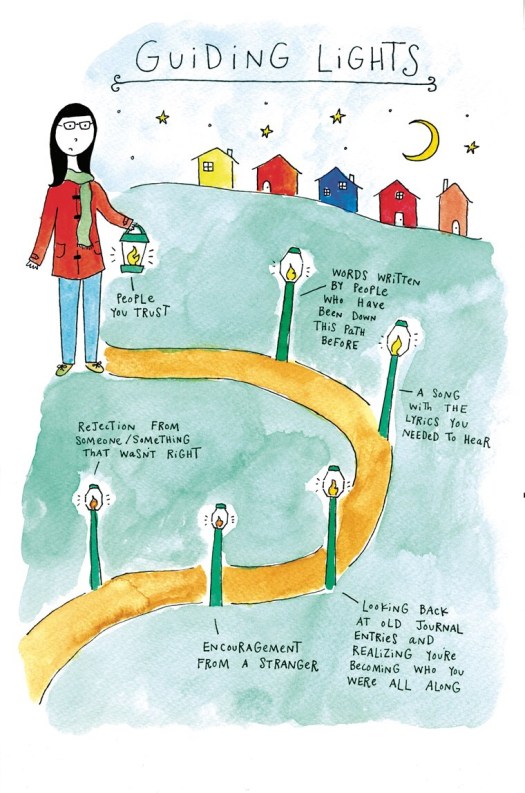 GUiDiNG LiGHTS
PEOPLE
YOU TRUST
WORDS WRITTEN
BY PEOPLE
WHO HAVE
BEEN DOWN
THIS PATH
BEFORE
A SONG
WiTH THE
LYRICS YOU
NEEDED TO HEAR
REJECTION FROM
SOMEONE/SOMETHING
THAT WASNT RIGHT
LOOKING BACK
AT OLD JOURNAL
ENTRIES AND
REALIZING YOU'RE
BECOMING WHO YOU
WERE ALL ALONG
ENCOURAGEMENT
FROM A STRANGER